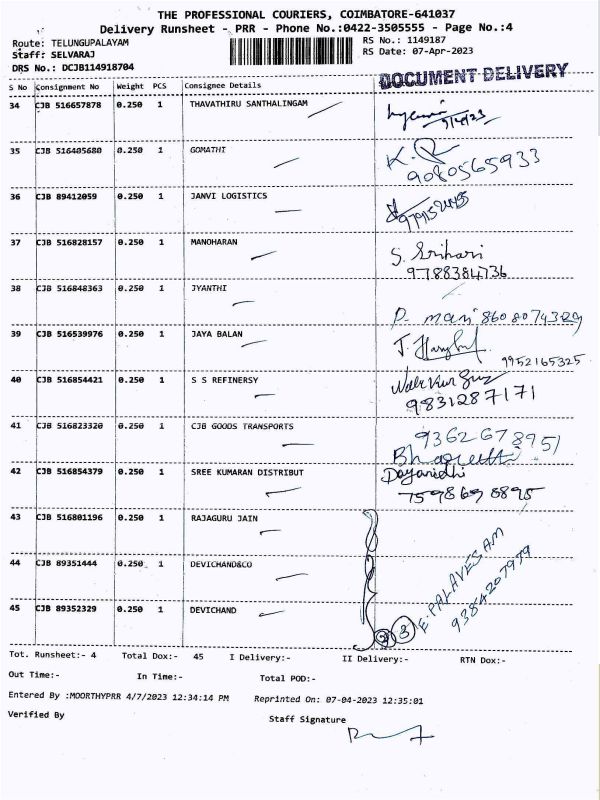 THE PROFESSIONAL COURIERS, COIMBATORE-641037
Delivery Runsheet - PRR - Phone No.:0422-3505555 - Page No.:4
Route: TELUNGUPALAYAM RS No.: 1149187
Staff: SELVARAJ RS Date: 07-Apr-2023
DRS No.: DCJB114918704
DOCUMENT DELIVERY
S No Consignment No Weight PCS Consignee Details
34 CJB 516657878 0.250 1 THAVATHIRU SANTHALINGAM
9/4/23
35 CJB 516405680 0.250 1 GOMATHI
9080565933
36 CJB 89412059 0.250 1 JANVI LOGISTICS
37 CJB 516828157 0.250 1 MANOHARAN S. Srihari
9788384736
38 CJB 516848363 0.250 1 JYANTHI
P. mani 8608074329
39 CJB 516539976 0.250 1 JAYA BALAN
9952165325
40 CJB 516854421 0.250 1 S S REFINERSY
9831287171
41 CJB 516823320 0.250 1 CJB GOODS TRANSPORTS 9362678951
42 CJB 516854379 0.250 1 SREE KUMARAN DISTRIBUT Dayanidhi
7598698895
43 CJB 516801196 0.250 1 RAJAGURU JAIN
44 CJB 89351444 0.250 1 DEVICHAND&CO
45 CJB 89352329 0.250 1 DEVICHAND
3 E. PALAVESAM
9384207979
Tot. Runsheet:- 4 Total Dox:- 45 I Delivery:- II Delivery:- RTN Dox:-
Out Time:- In Time:- Total POD:-
Entered By :MOORTHYPRR 4/7/2023 12:34:14 PM Reprinted On: 07-04-2023 12:35:01
Verified By Staff Signature